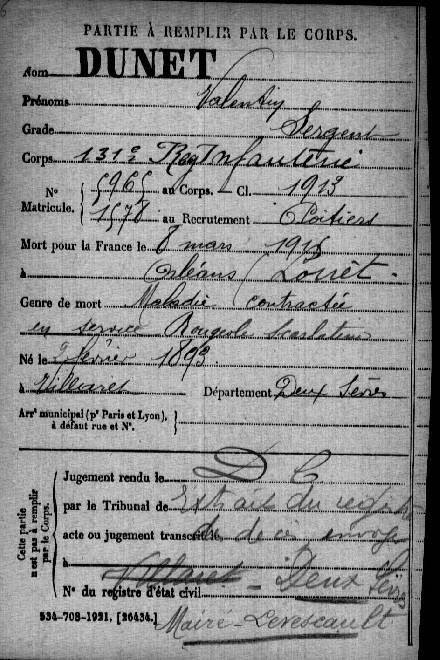 PARTIE À REMPLIR PAR LE CORPS.
Nom DUNET
Prénoms Valentin
Grade Sergent
Corps 131e Reg Infanterie
N° 5965 au Corps. — Cl. 1913
Matricule. 1578 au Recrutement Poitiers
Mort pour la France le 8 mars 1915
à Orléans (Loiret
Genre de mort Maladie contractée
en service Rougeole Scarlatine
Né le février 1893
à Département Deux Sèvres
Arrt municipal (pr Paris et Lyon),
à défaut rue et N°.
Cette partie
n'est pas à remplir
par le Corps.
Jugement rendu le D C
par le Tribunal de Extrait du registre
acte ou jugement transcrit le de décès envoyé
à Villaret - Deux Sèvres
N° du registre d'état civil
534-708-1921. [26434.] Mairé-Levescault